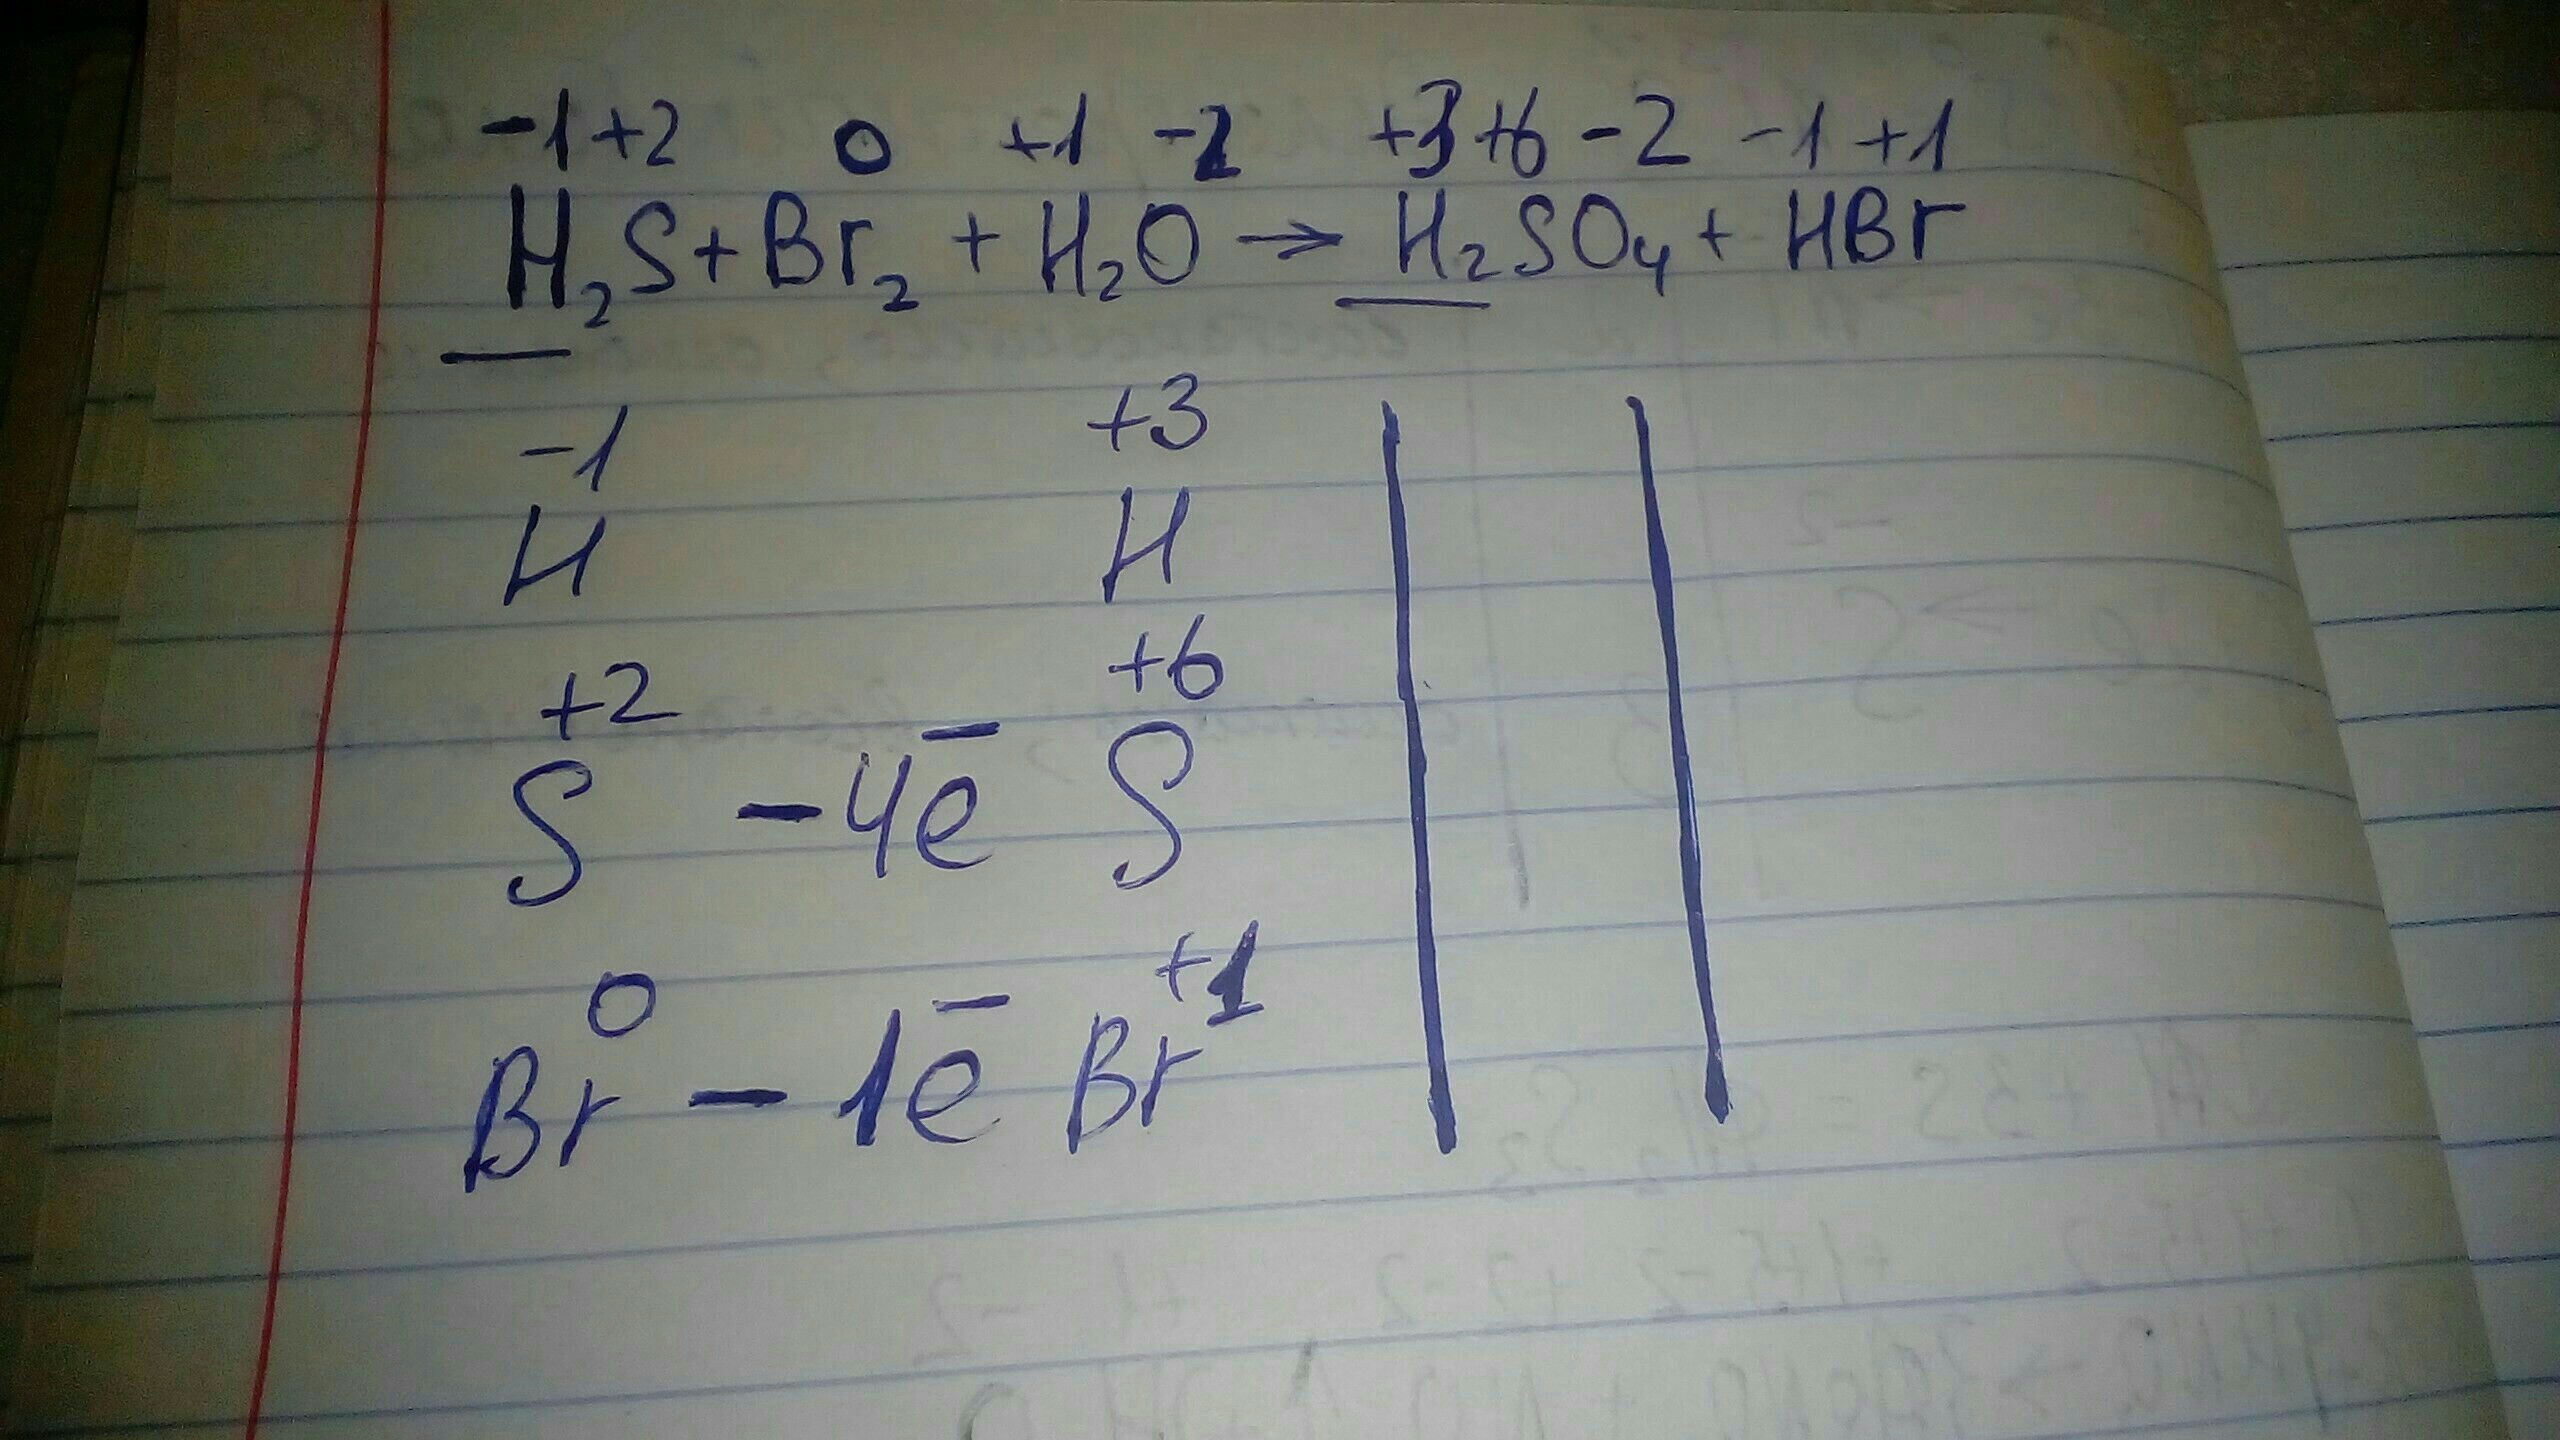 -1 +2 0 +1 -2 +3 +6 -2 -1 +1
H₂S + Br₂ + H₂O → H₂SO₄ + HBr
-1 +3
H H
+2 +6
S - 4e̅ S
0 +1
Br - 1e̅ Br